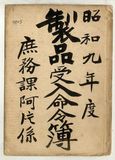 昭和九年度
製品受入命令簿
庶務課阿片係